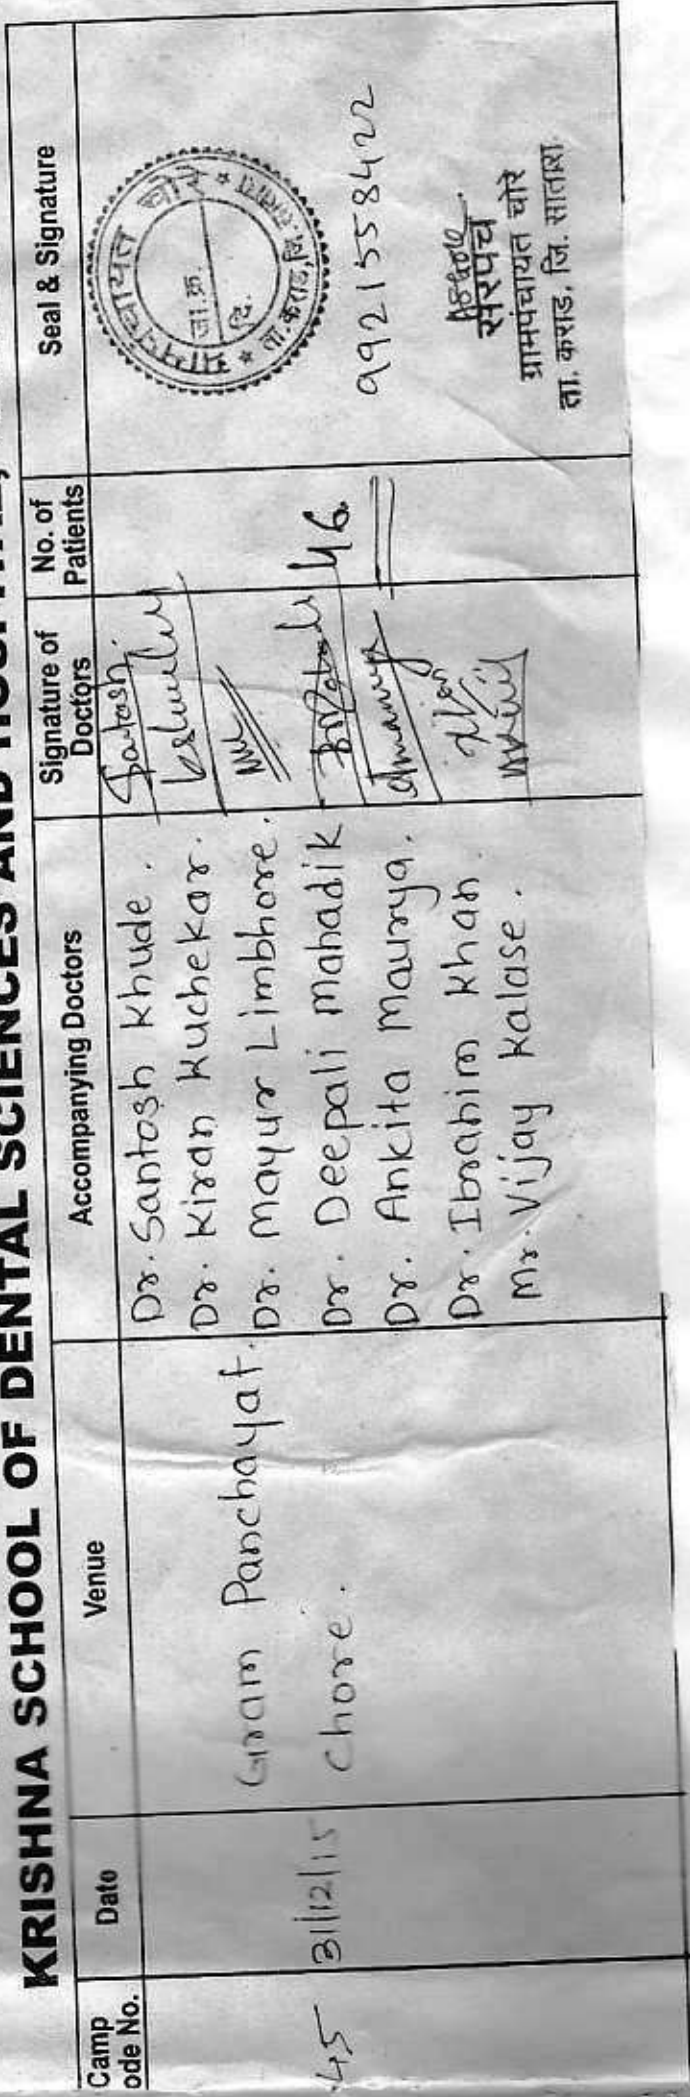 KRISHNA SCHOOL OF DENTAL SCIENCES AND
Camp
ode No.
Date
Venue
Accompanying Doctors
Signature of
Doctors
No. of
Patients
Seal & Signature
45
31/12/15
Gram Panchayat.
Chore.
Dr. Santosh Khude.
Dr. Kiran Kuchekar.
Dr. Mayur Limbhore.
Dr. Deepali Mahadik
Dr. Ankita Maurya.
Dr. Ibrahim Khan.
Mr. Vijay Kalase.
Santosh
46
ग्रामपंचायत चोरे
जा.क्र.
दि.
ता. कराड, जि.
9921558422
सरपंच
ग्रामपंचायत चोरे
ता. कराड, जि. सातारा.